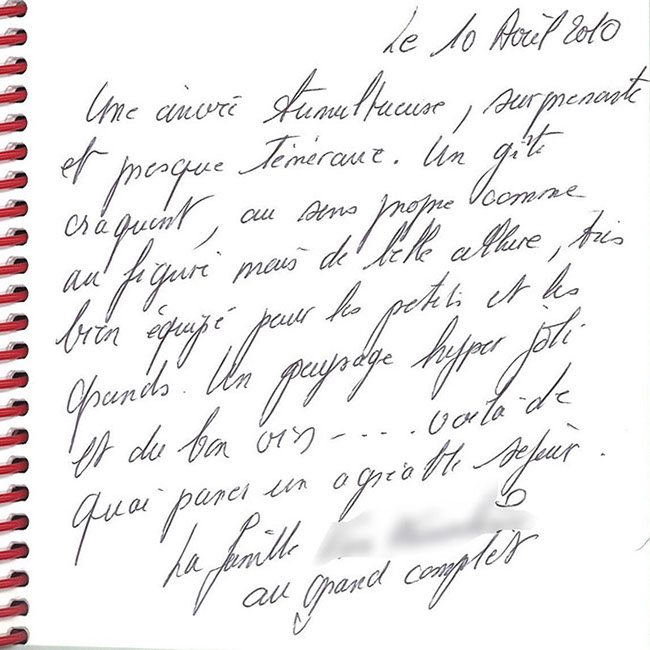 Le 10 Avril 2010
Une arrivée tumultueuse, surprenante
et presque téméraire. Un gîte
craquant, au sens propre comme
au figuré mais de belle allure, très
bien équipé pour les petits et les
grands. Un paysage hyper joli
et du bon vin - - - . voilà de
quoi passer un agréable séjour.
La famille
au grand complet